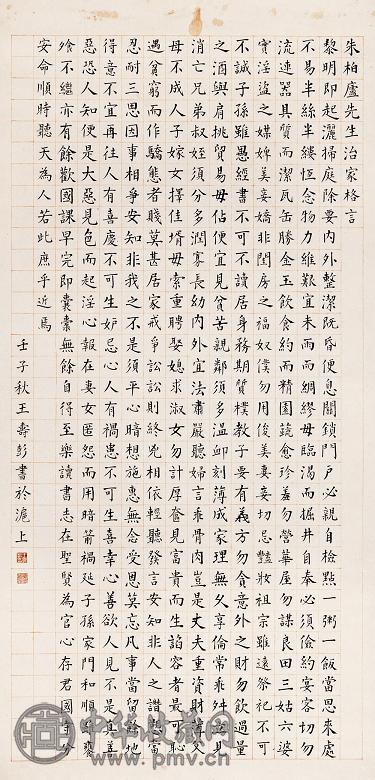 朱柏廬先生治家格言
黎明即起灑掃庭除要內外整潔既昏便息關鎖門戶必親自檢點一粥一飯當思來處
不易半絲半縷恆念物力維艱宜未雨而綢繆毋臨渴而掘井自奉必須儉約宴客切勿
流連器具質而潔瓦缶勝金玉飲食約而精園蔬愈珍羞勿營華屋勿謀良田三姑六婆
實淫盜之媒婢美妾嬌非閨房之福奴僕勿用俊美妻妾切忌豔妝祖宗雖遠祭祀不可
不誠子孫雖愚經書不可不讀居身務期質樸教子要有義方勿貪意外之財勿飲過量
之酒與肩挑貿易毋佔便宜見貧苦親鄰須多溫卹刻薄成家理無久享倫常乖舛立見
消亡兄弟叔姪須分多潤寡長幼內外宜法肅嚴聽婦言乖骨肉豈是丈夫重資財薄父
母不成人子嫁女擇佳壻毋索重聘娶媳求淑女勿計厚奩見富貴而生諂容者最可恥
遇貧窮而作驕態者賤莫甚居家戒爭訟訟則終兇相依輕聽發言安知非人之譖愬當
忍耐三思因事相爭安知非我之不是須平心暗想施惠無念受恩莫忘凡事當留餘地
得意不宜再往人有喜慶不可生妒忌心人有禍患不可生喜幸心善欲人見不是真善
惡恐人知便是大惡見色而起淫心報在妻女匿怨而用暗箭禍延子孫家門和順雖饔
飧不繼亦有餘歡國課早完即囊橐無餘自得至樂讀書志在聖賢為官心存君國守分
安命順時聽天為人若此庶乎近焉
壬子秋王壽彭書於滬上
www.pmv.cn